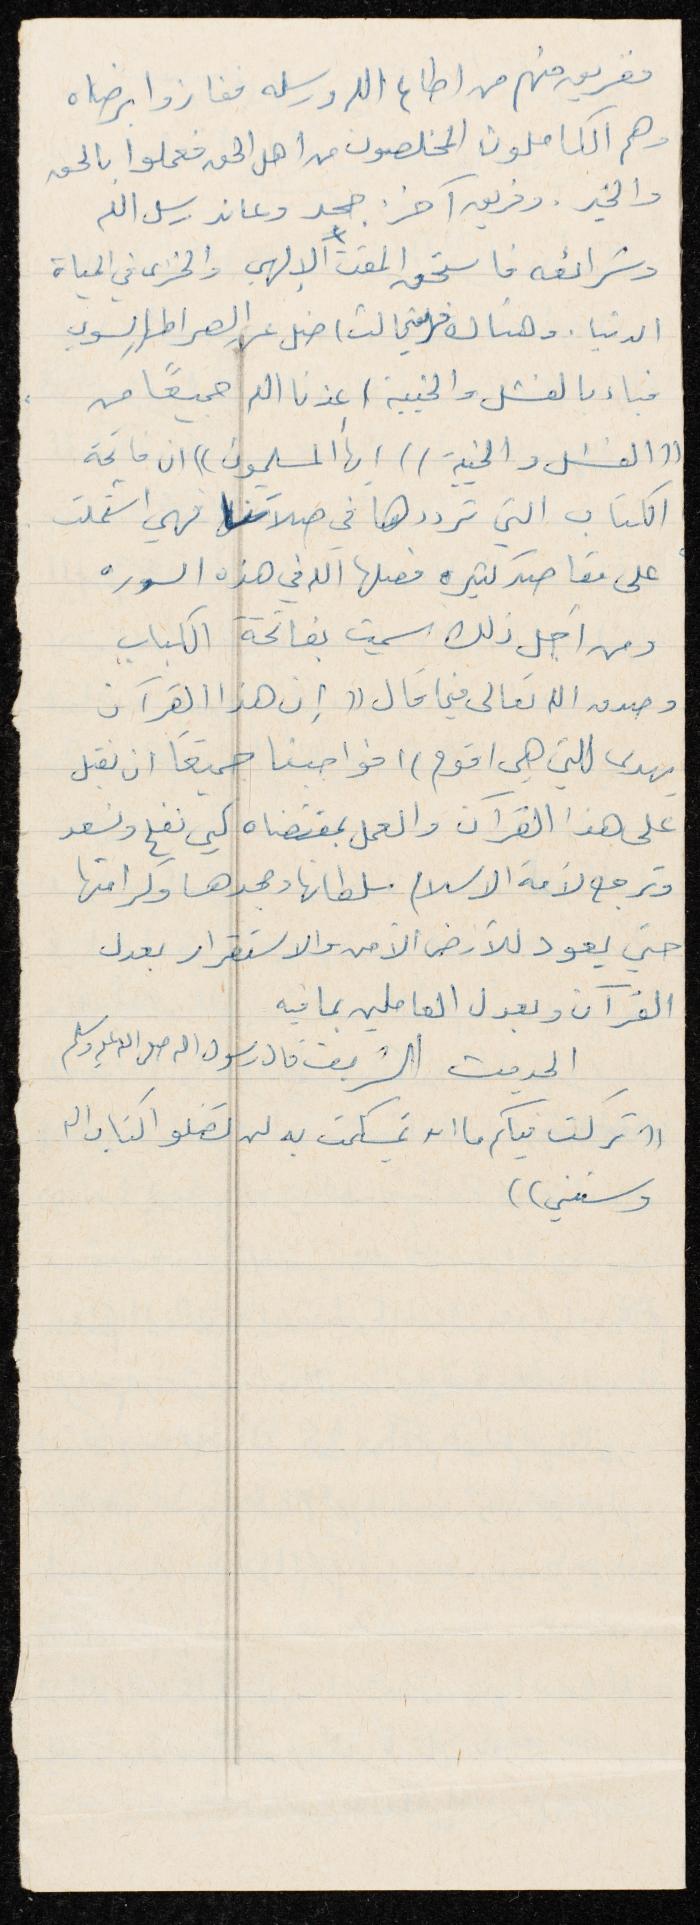 ففريق منهم من اطاع الله ورسله ففازوا برضاه
وهم الكاملون المخلصون من اهل الحق فعملوا بالحق
والخير . وفريق آخر : جحد وعاند رسل الله
وشرائعه فاستحق المقت الإلهي والخزى في الحياة
الدنيا . وهناك فريق ثالث ضل عن الصراط السوي
فباء بالفشل والخيبة اعذنا الله جميعًا من
((الفشل والخيبة)) ايها المسلمون )) ان فاتحة
الكتاب التي نرددها في صلاتنا فهي اشتملت
على مقاصد كثيره فصلها الله في هذه السوره
ومن أجل ذلك سميت بفاتحة الكتاب
وصدق الله تعالى فيما قال (( إن هذا القرآن
يهدى للتي هي اقوم )) فواجبنا جميعًا ان نقبل
على هذا القرآن والعمل بمقتضاه كي نفلح ونسعد
وترجع لأمة الاسلام سلطانها ومجدها وكرامتها
حتي يعود للأرض الأمن والاستقرار بعدل
القرآن وبعدل العاملين بما فيه
الحديث الشريف قال رسول الله صلى الله عليه وسلم
(( تركت فيكم ما ان تمسكت به لن تضلو اكتاب الله
وسنتي ))